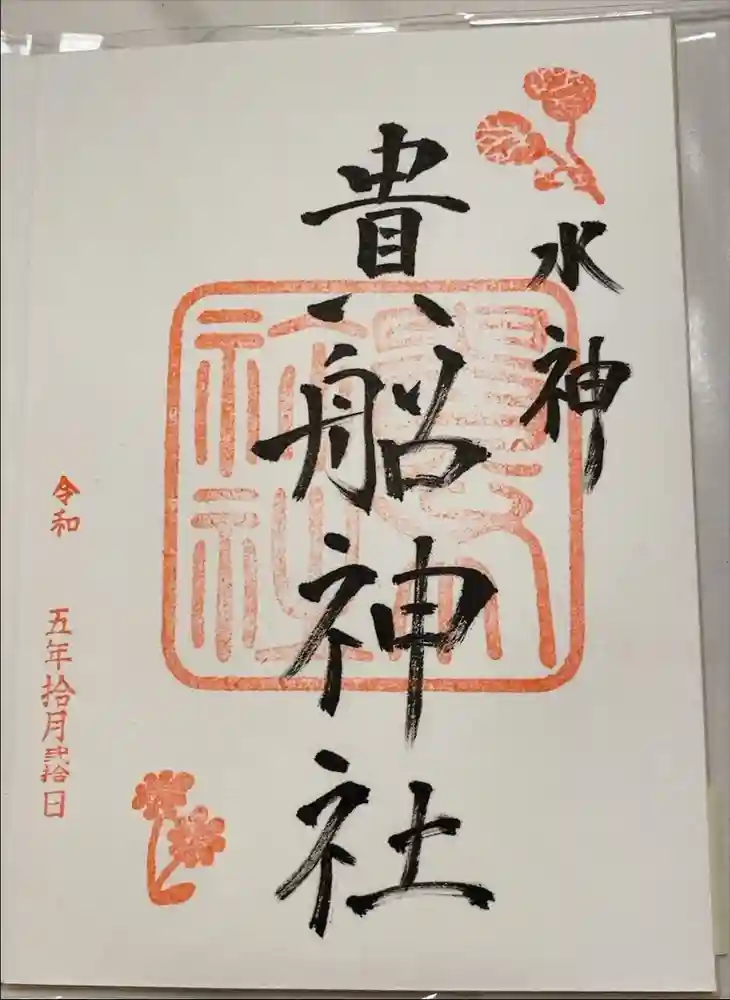 水神
貴船神社
令和
五年拾月弐拾日